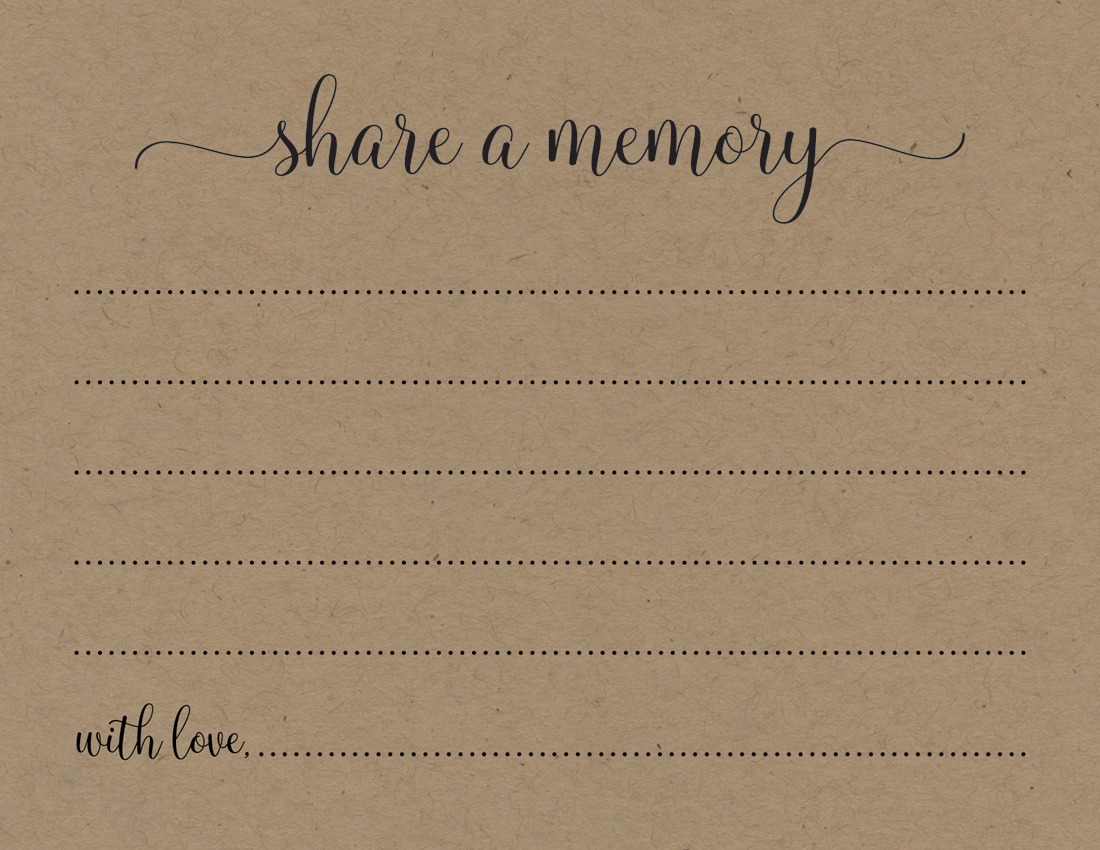 share a memory
with love,